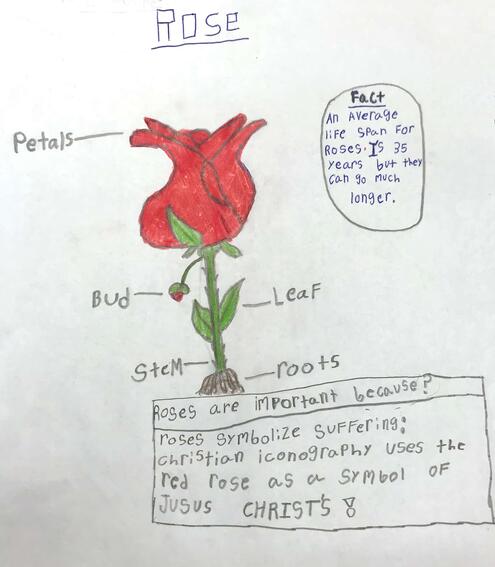 ROSE
Petals
Fact
AN AVerage
life SPaN FOR
ROSES. IS 35
Years but they
Can go much
longer.
Bud
LeaF
SteM
roots
Roses are imPortant because?
roses symbolize suffering:
christian iconography uses the
red rose as a symbol OF
Jusus CHRIST'S !